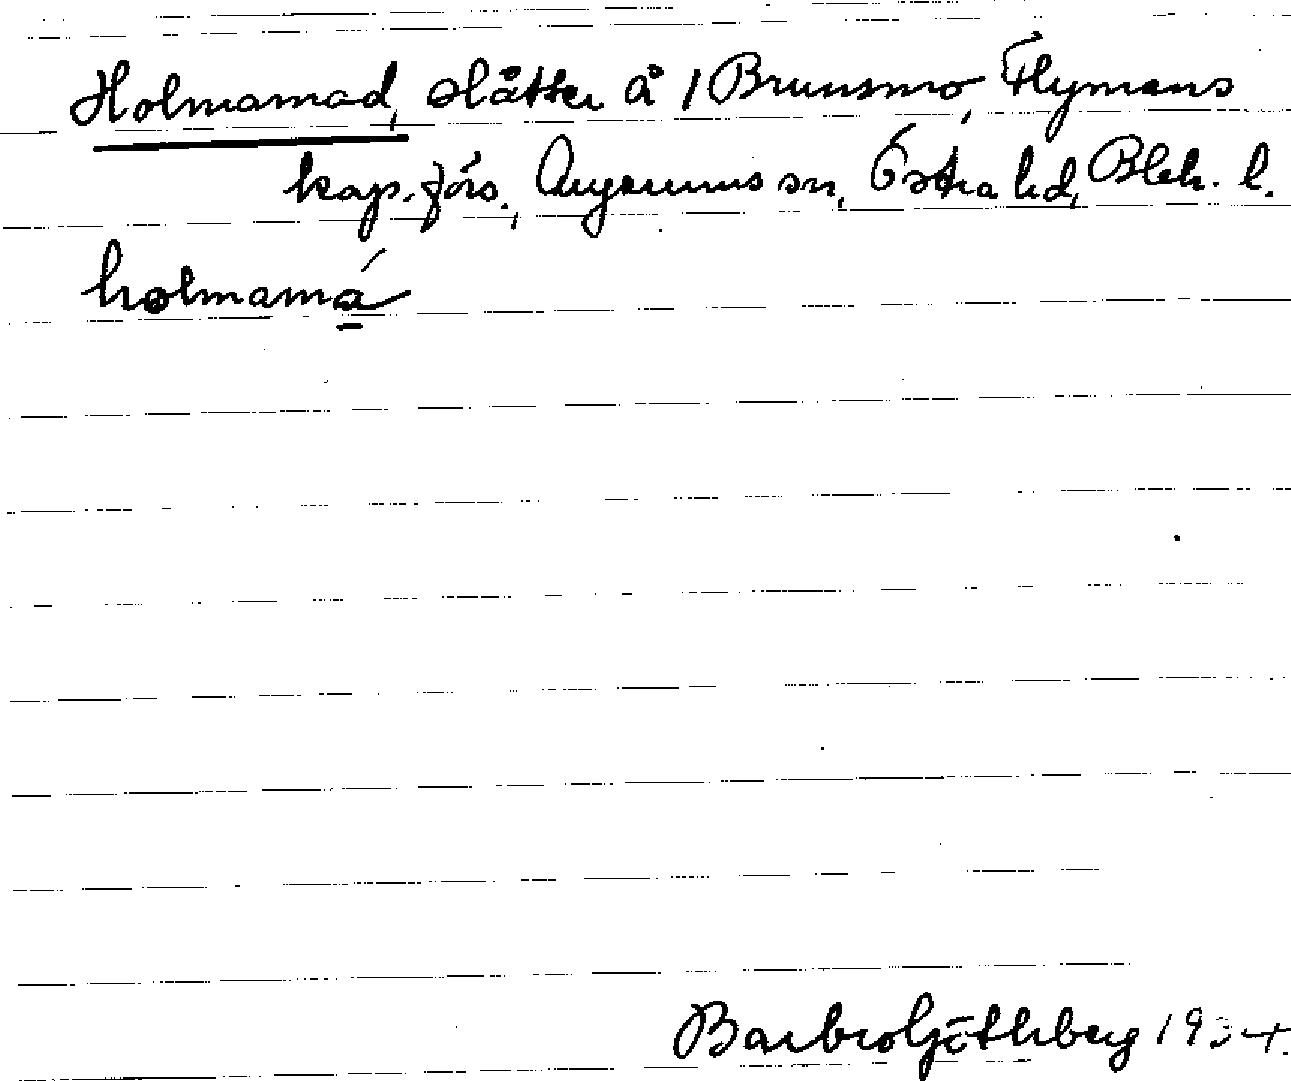 Holmamad, slåtter å 1 Brunsmo, Flymens
kap.förs., Augerums sn, Östra hd, Blek. l.
holmamá
Barbro Göthberg 1934.